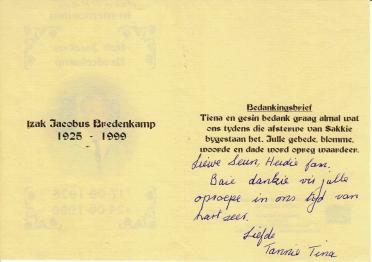 Izak Jacobus Bredenkamp
1925 - 1999
Bedankingsbrief
Tiena en gesin bedank graag almal wat
ons tydens die afsterwe van Sakkie
bygestaan het. Julle gebede, blomme,
woorde en dade word opreg waardeer.
Liewe Seun, Heidie fam.
Baie dankie vir julle
oproepe in ons tyd van
hart seer.
Liefde
Tannie Tina